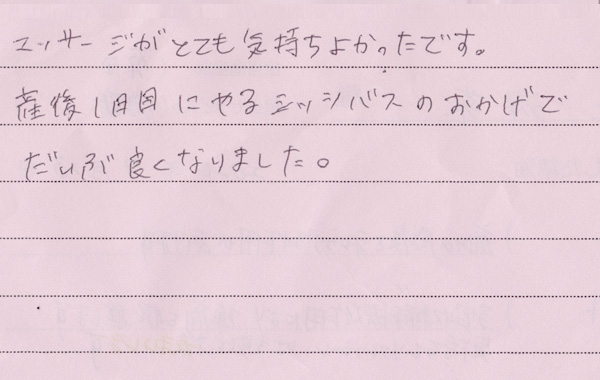 マッサージがとても気持ちよかったです。
産後1日目にやるシッツバスのおかげで
だいぶ良くなりました。